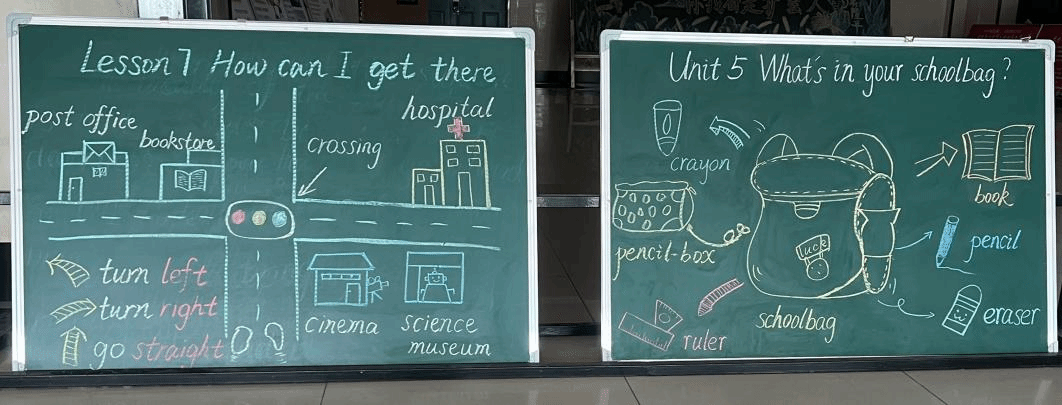 Lesson 7 How can I get there
post office
bookstore
crossing
hospital
turn left
turn right
go straight
cinema
science
museum
Unit 5 What's in your schoolbag?
crayon
pencil-box
ruler
Luck
schoolbag
book
pencil
eraser